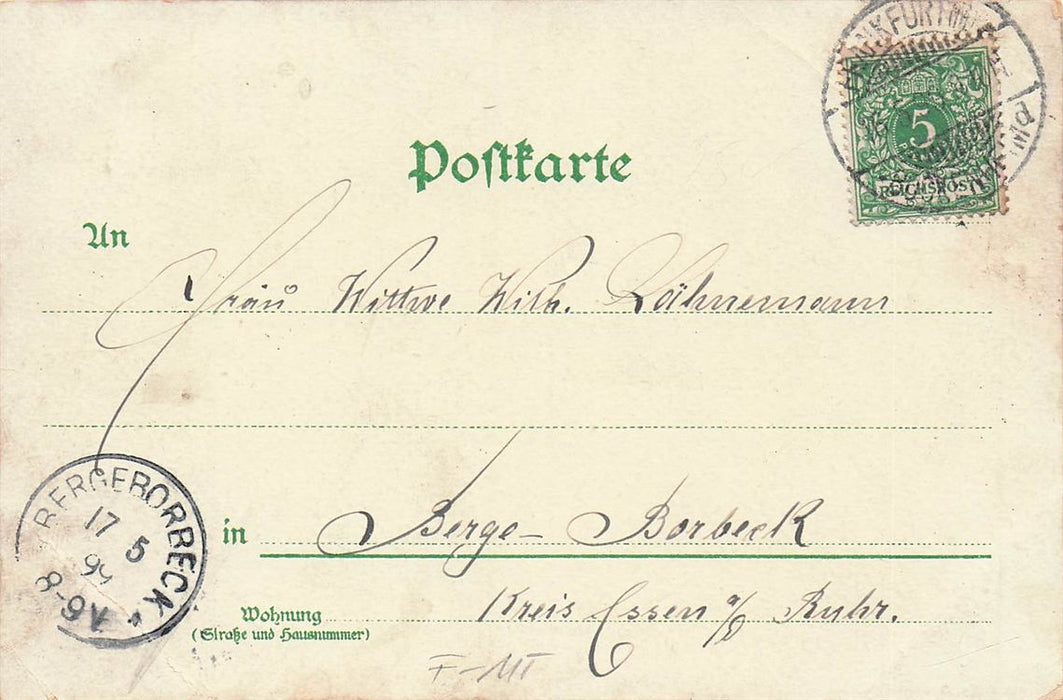 FRANKFURT (MAIN)
5
REICHSPOST
Postkarte
An
Frau Wittwe Wilh. Lähnemann
BERGEBORBECK
17 5
99
8-9V
in Berge-Borbeck
Wohnung
(Straße und Hausnummer)
Kreis Essen a/ Ruhr.